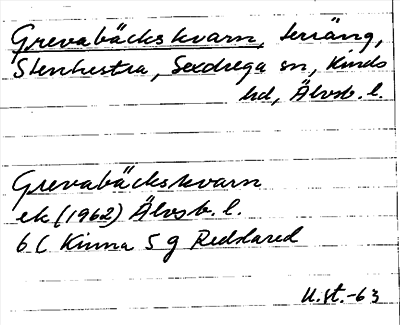 Grevabäckskvarn, terräng,
Stenhestra, Sexdrega sn, Kinds
hd, Älvsb. l.
Grevabäckskvarn
ek (1962) Älvsb. l.
6 C Kinna 5 g Redslared
U.st.-63